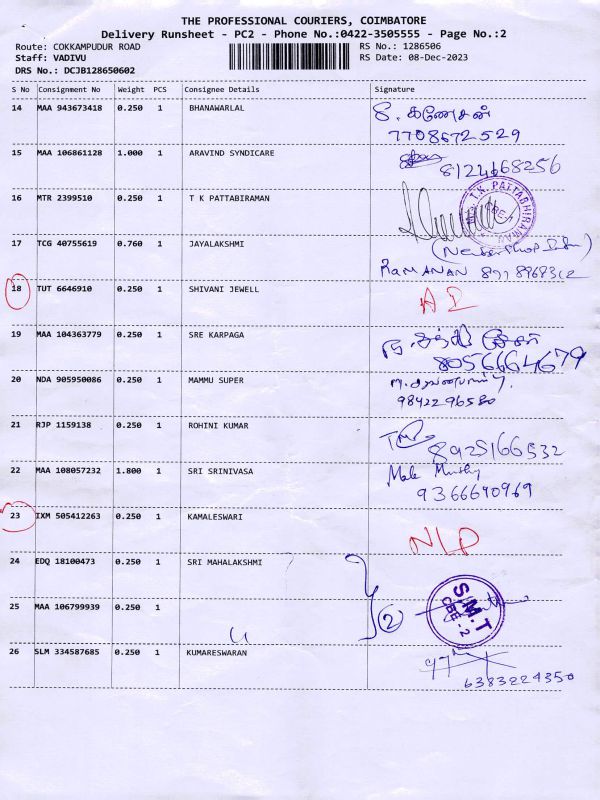 THE PROFESSIONAL COURIERS, COIMBATORE
Delivery Runsheet - PC2 - Phone No.:0422-3505555 - Page No.:2
Route: COKKAMPUDUR ROAD RS No.: 1286506
Staff: VADIVU RS Date: 08-Dec-2023
DRS No.: DCJB128650602
S No Consignment No Weight PCS Consignee Details Signature
14 MAA 943673418 0.250 1 BHANAWARLAL
கணேசன்
7708672529
15 MAA 106861128 1.000 1 ARAVIND SYNDICARE
8124668256
16 MTR 2399510 0.250 1 T K PATTABIRAMAN
T.K. PATTABHIRAMAN
17 TCG 40755619 0.760 1 JAYALAKSHMI
RAMANAN
18 TUT 6646910 0.250 1 SHIVANI JEWELL
19 MAA 104363779 0.250 1 SRE KARPAGA
8056664679
20 NDA 905950086 0.250 1 MAMMU SUPER
9842296580
21 RJP 1159138 0.250 1 ROHINI KUMAR
8925166532
22 MAA 108057232 1.800 1 SRI SRINIVASA
9366640969
23 IXM 505412263 0.250 1 KAMALESWARI
NLP
24 EDQ 18100473 0.250 1 SRI MAHALAKSHMI
2
S.M.T
CBE-2
25 MAA 106799939 0.250 1
26 SLM 334587685 0.250 1 KUMARESWARAN
6383224350